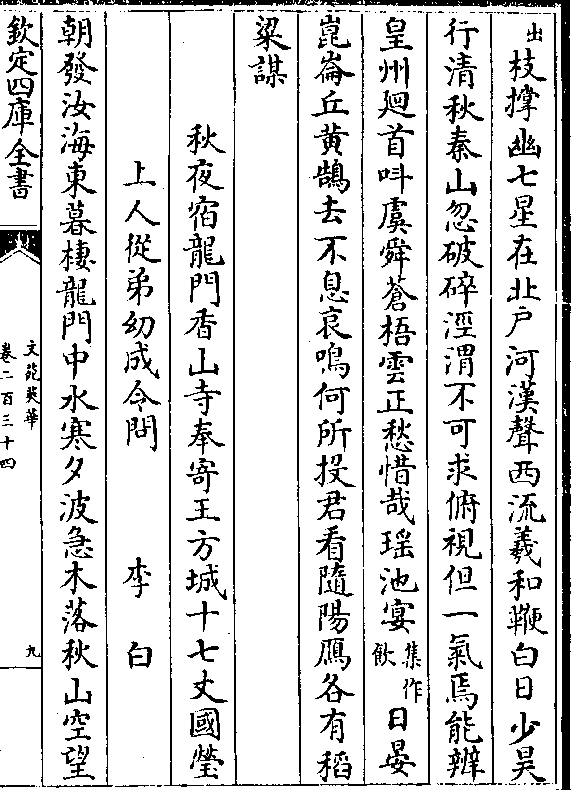 出枝撑幽七星在北户河漢聲西流羲和鞭白日少昊
行清秋秦山忽破碎涇渭不可求俯視但一氣焉能辨
皇州廻首呌虞舜蒼梧雲正愁惜哉瑶池宴集作飲日晏
崑崙丘黄鵠去不息哀鳴何所投君看隨陽鴈各有稻
粱謀
秋夜宿龍門香山寺奉寄王方城十七丈國瑩
上人從弟幼成令問 李白
朝發汝海東暮棲龍門中水寒夕波急木落秋山空望
欽定四庫全書
文苑英華
卷二百三十四
九